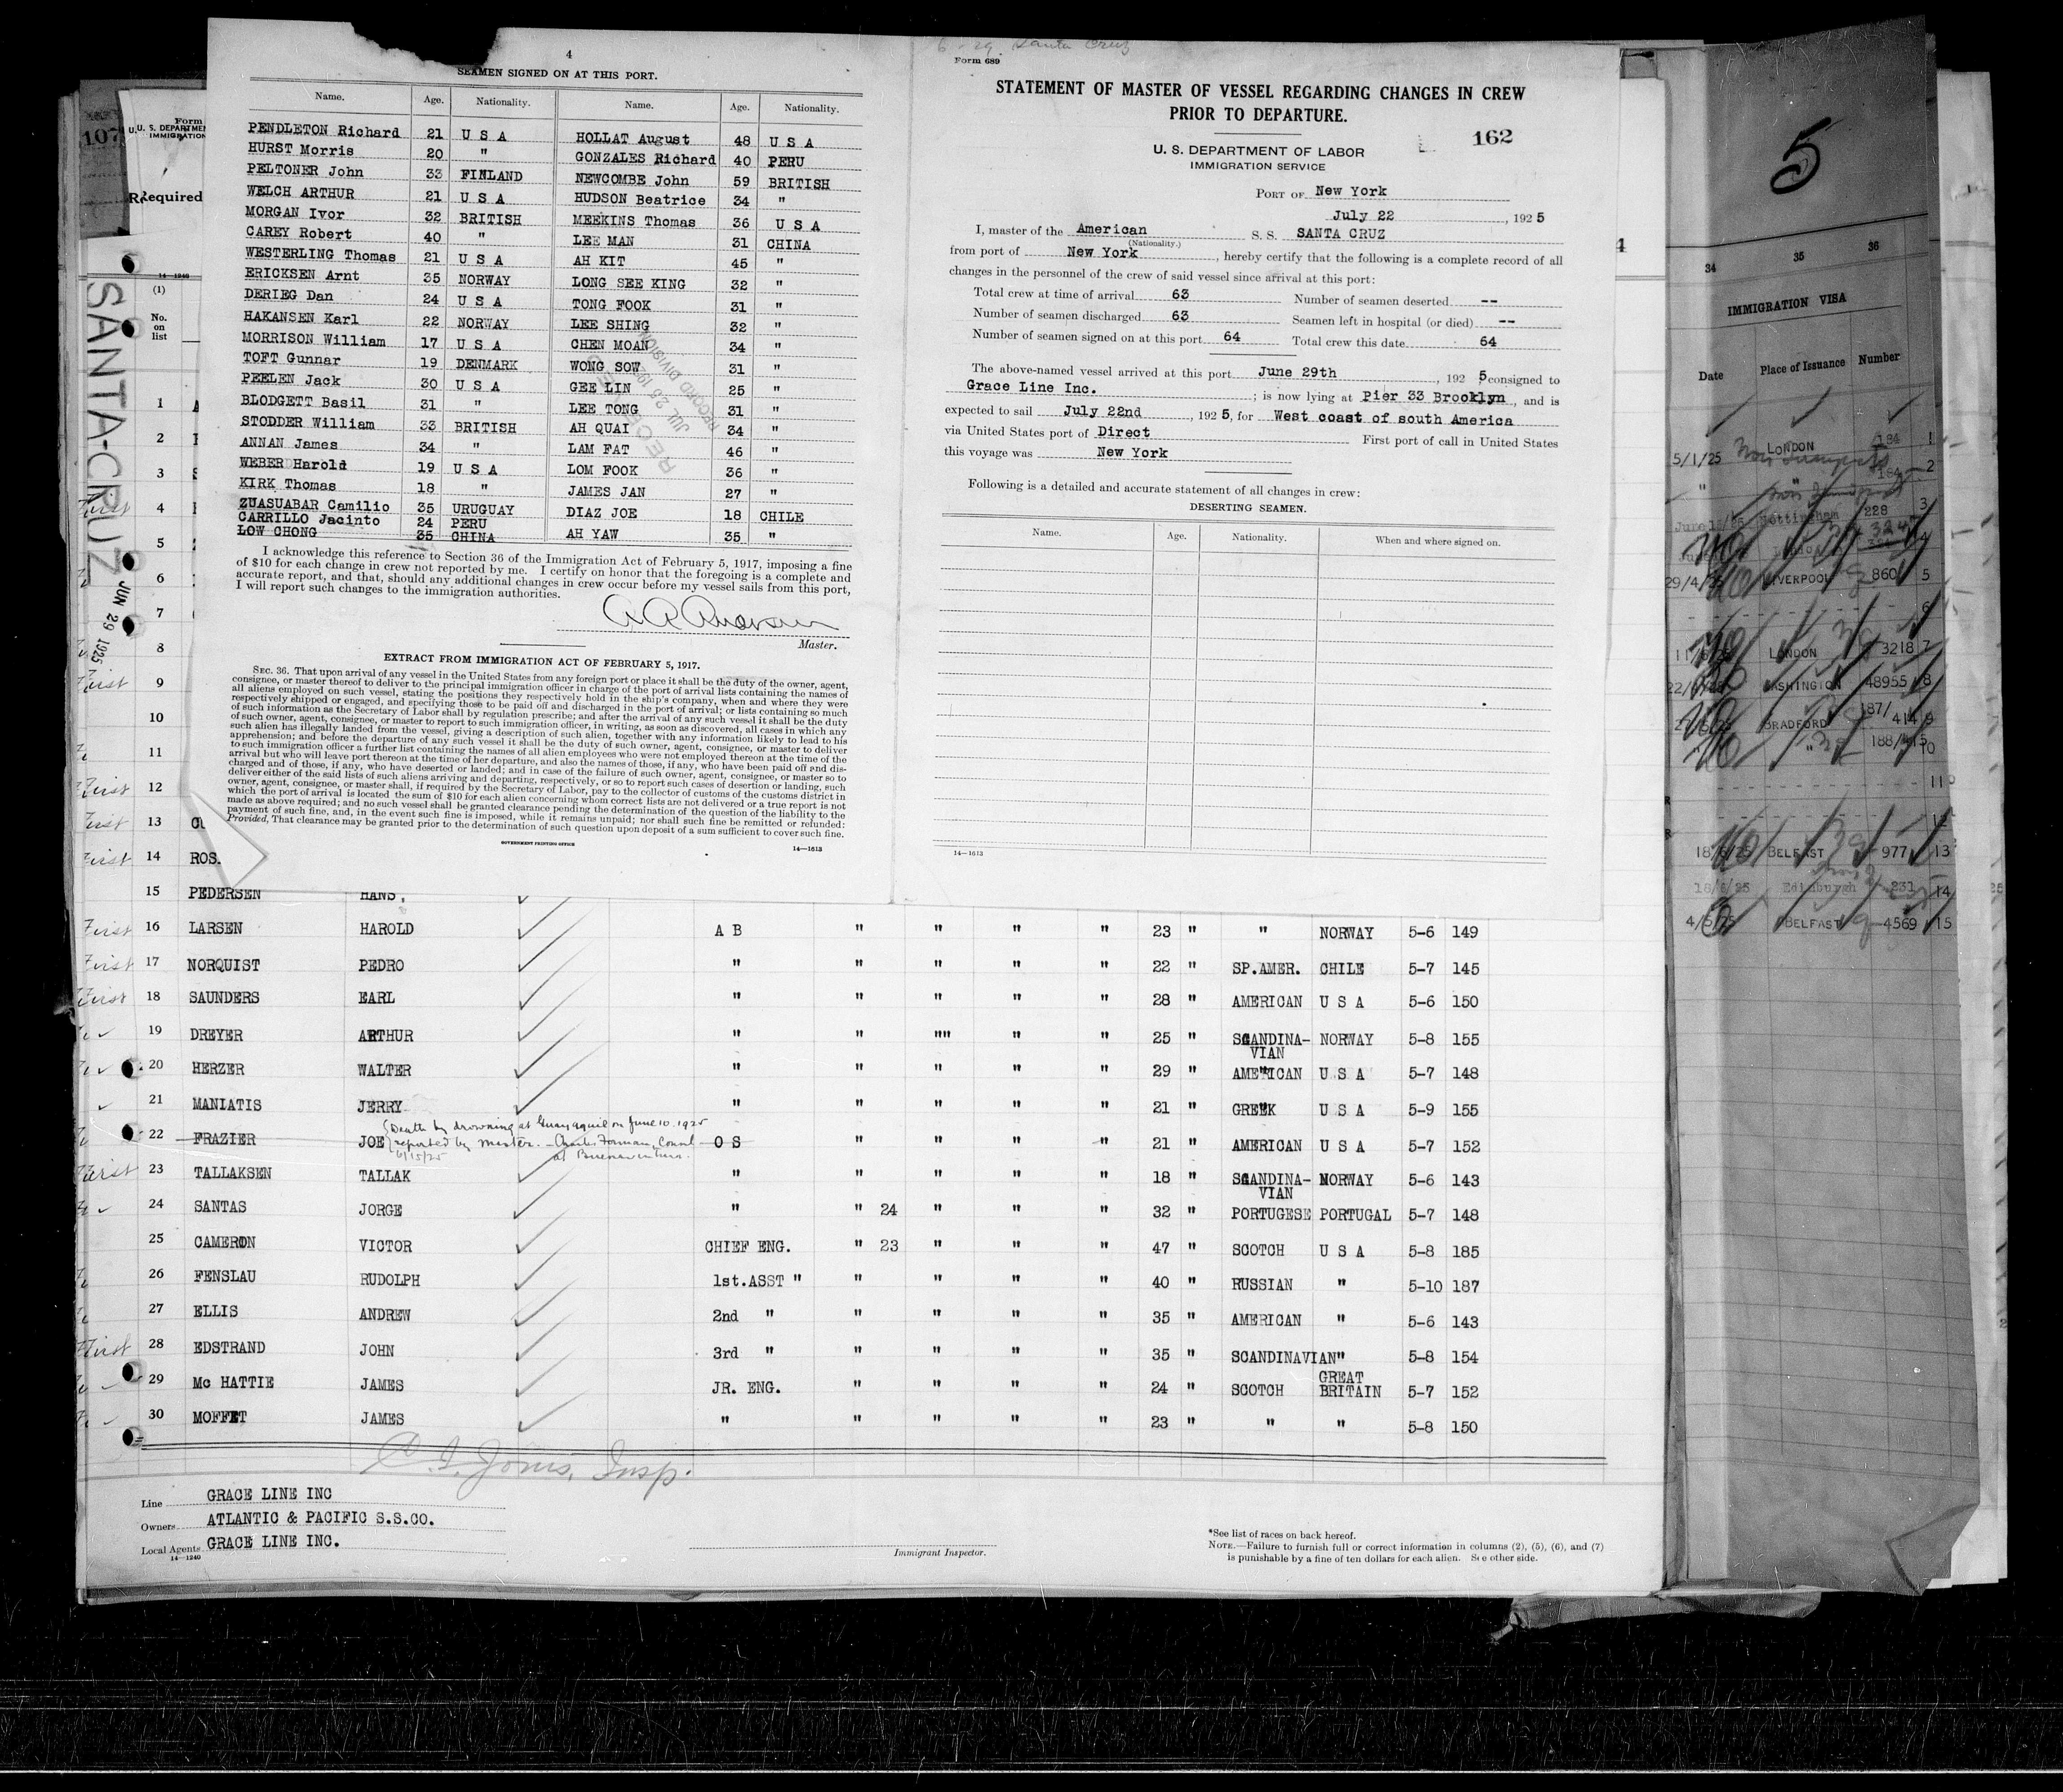 4
SEAMEN SIGNED ON AT THIS PORT.
Name. Age. Nationality. Name. Age. Nationality.
PENDLETON Richard 21 U S A HOLLAT August 48 U S A
HURST Morris 20 " GONZALES Richard 40 PERU
PELTONER John 33 FINLAND NEWCOMBE John 59 BRITISH
WELCH ARTHUR 21 U S A HUDSON Beatrice 34 "
MORGAN Ivor 32 BRITISH MEEKINS Thomas 36 U S A
CAREY Robert 40 " LEE MAN 31 CHINA
WESTERLING Thomas 21 U S A AH KIT 45 "
ERICKSEN Arnt 35 NORWAY LONG SEE KING 32 "
DERIEG Dan 24 U S A TONG FOOK 31 "
HAKANSEN Karl 22 NORWAY LEE SHING 32 "
MORRISON William 17 U S A CHEN MOAN 34 "
TOFT Gunnar 19 DENMARK WONG SOW 31 "
PEELEN Jack 30 U S A GEE LIN 25 "
BLODGETT Basil 31 " LEE TONG 31 "
STODDER William 33 BRITISH AH QUAI 34 "
ANNAN James 34 " LAM FAT 46 "
WEBER Harold 19 U S A LOM FOOK 36 "
KIRK Thomas 18 " JAMES JAN 27 "
ZUASUABAR Camilio 35 URUGUAY DIAZ JOE 18 CHILE
CARRILLO Jacinto 24 PERU
LOW CHONG 35 CHINA AH YAW 35 "
RECEIVED
JUL 25 1925
RECORD DIVISION
I acknowledge this reference to Section 36 of the Immigration Act of February 5, 1917, imposing a fine
of $10 for each change in crew not reported by me. I certify on honor that the foregoing is a complete and
accurate report, and that, should any additional changes in crew occur before my vessel sails from this port,
I will report such changes to the immigration authorities.
Master.
EXTRACT FROM IMMIGRATION ACT OF FEBRUARY 5, 1917.
SEC. 36. That upon arrival of any vessel in the United States from any foreign port or place it shall be the duty of the owner, agent,
consignee, or master thereof to deliver to the principal immigration officer in charge of the port of arrival lists containing the names of
all aliens employed on such vessel, stating the positions they respectively hold in the ship's company, when and where they were
respectively shipped or engaged, and specifying those to be paid off and discharged in the port of arrival; or lists containing so much
of such information as the Secretary of Labor shall by regulation prescribe; and after the arrival of any such vessel it shall be the duty
of such owner, agent, consignee, or master to report to such immigration officer, in writing, as soon as discovered, all cases in which any
such alien has illegally landed from the vessel, giving a description of such alien, together with any information likely to lead to his
apprehension; and before the departure of any such vessel it shall be the duty of such owner, agent, consignee, or master to deliver
to such immigration officer a further list containing the names of all alien employees who were not employed thereon at the time of the
arrival but who will leave port thereon at the time of her departure, and also the names of those, if any, who have been paid off and dis-
charged and of those, if any, who have deserted or landed; and in case of the failure of such owner, agent, consignee, or master so to
deliver either of the said lists of such aliens arriving and departing, respectively, or so to report such cases of desertion or landing, such
owner, agent, consignee, or master shall, if required by the Secretary of Labor, pay to the collector of customs of the customs district in
which the port of arrival is located the sum of $10 for each alien concerning whom correct lists are not delivered or a true report is not
made as above required; and no such vessel shall be granted clearance pending the determination of the question of the liability to the
payment of such fine, and, in the event such fine is imposed, while it remains unpaid; nor shall such fine be remitted or refunded:
Provided, That clearance may be granted prior to the determination of such question upon deposit of a sum sufficient to cover such fine.
GOVERNMENT PRINTING OFFICE
14—1613
6-29 Santa Cruz
Form 689
STATEMENT OF MASTER OF VESSEL REGARDING CHANGES IN CREW
PRIOR TO DEPARTURE.
162
U. S. DEPARTMENT OF LABOR
IMMIGRATION SERVICE
PORT OF New York
July 22, 1925
I, master of the American S. S. SANTA CRUZ
(Nationality.)
from port of New York, hereby certify that the following is a complete record of all
changes in the personnel of the crew of said vessel since arrival at this port:
Total crew at time of arrival 63 Number of seamen deserted --
Number of seamen discharged 63 Seamen left in hospital (or died) --
Number of seamen signed on at this port 64 Total crew this date 64
The above-named vessel arrived at this port June 29th, 192 5 consigned to
Grace Line Inc.; is now lying at Pier 33 Brooklyn, and is
expected to sail July 22nd, 192 5, for West coast of south America
via United States port of Direct First port of call in United States
this voyage was New York
Following is a detailed and accurate statement of all changes in crew:
DESERTING SEAMEN.
Name. Age. Nationality. When and where signed on.
14—1613
107
Form
U. S. DEPARTMENT
IMMIGRATION
Required
14—1240
(1)
No.
on
list
SANTA-CRUZ
JUN 29 1925
1
2
3
First 4
5
6
7
8
First 9
10
11
First 12
First 13
First 14 ROS.
15 PEDERSEN HANS.
First 16 LARSEN HAROLD A B " " " " 23 " " NORWAY 5-6 149
First 17 NORQUIST PEDRO " " " " " 22 " SP.AMER. CHILE 5-7 145
First 18 SAUNDERS EARL " " " " " 28 " AMERICAN U S A 5-6 150
19 DREYER ARTHUR " " "" " " 25 " SCANDINA-VIAN NORWAY 5-8 155
20 HERZER WALTER " " " " " 29 " AMERICAN U S A 5-7 148
21 MANIATIS JERRY " " " " " 21 " GREEK U S A 5-9 155
(Death by drowning at Guayaquil on June 10, 1925
22 FRAZIER JOE reported by master. - Charles Forman, Consul O S " " " " 21 " AMERICAN U S A 5-7 152
6/15/25 at Buenaventura.
First 23 TALLAKSEN TALLAK " " " " " 18 " SCANDINA-VIAN NORWAY 5-6 143
24 SANTAS JORGE " " 24 " " " 32 " PORTUGESE PORTUGAL 5-7 148
25 CAMERON VICTOR CHIEF ENG. " 23 " " " 47 " SCOTCH U S A 5-8 185
26 FENSLAU RUDOLPH 1st.ASST " " " " " 40 " RUSSIAN " 5-10 187
27 ELLIS ANDREW 2nd " " " " " 35 " AMERICAN " 5-6 143
First 28 EDSTRAND JOHN 3rd " " " " " 35 " SCANDINAVIAN " 5-8 154
29 Mc HATTIE JAMES JR. ENG. " " " " 24 " SCOTCH GREAT BRITAIN 5-7 152
30 MOFFET JAMES " " " " " 23 " " " 5-8 150
Jones, Insp.
Line GRACE LINE INC
Owners ATLANTIC & PACIFIC S.S.CO.
Local Agents GRACE LINE INC.
14—1240
Immigrant Inspector.
*See list of races on back hereof.
NOTE.—Failure to furnish full or correct information in columns (2), (5), (6), and (7)
is punishable by a fine of ten dollars for each alien. See other side.
5
34 35 36
IMMIGRATION VISA
Date Place of Issuance Number
5/1/25 LONDON 184 1
" " 184 2
Nottingham 228 3
London 4
29/4/25 LIVERPOOL 860 5
6
LONDON 3218 7
WASHINGTON 48955 8
BRADFORD 187/414 9
" 188/415 10
11
12
18/6/25 BELFAST 977 13
18/6/25 Edinburgh 231 14
BELFAST 4569 15